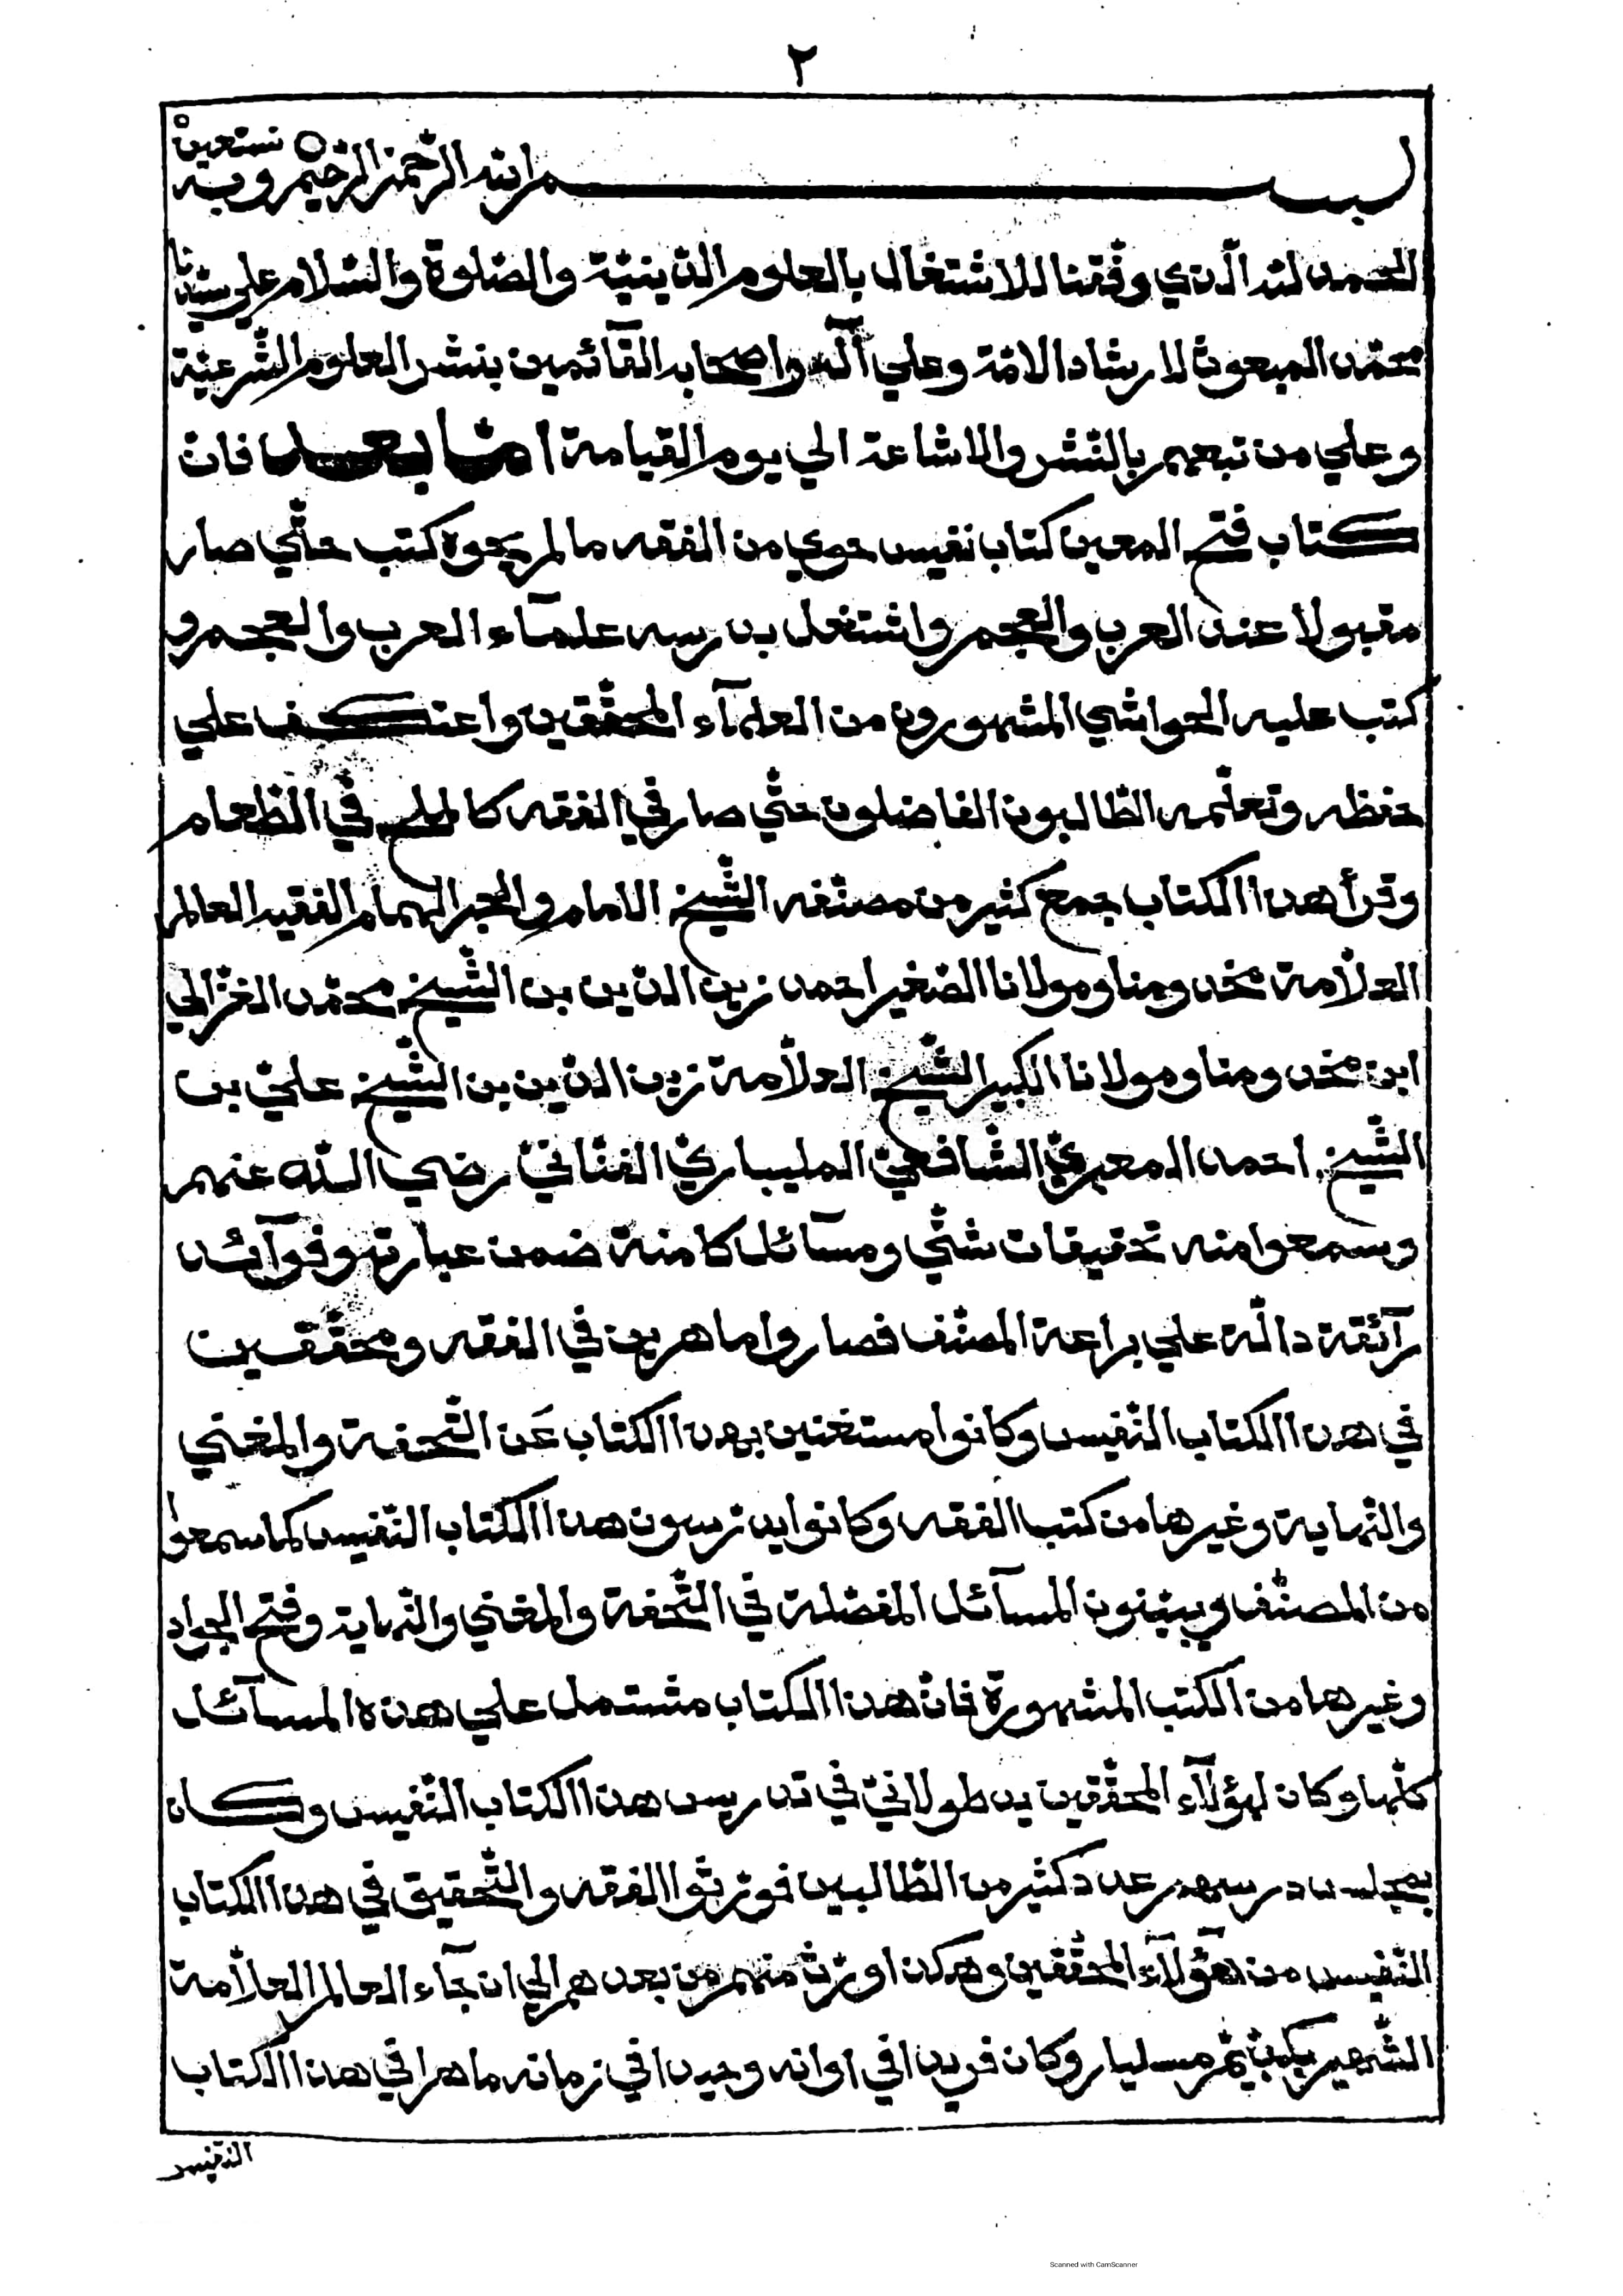 ٢
بسم الله الرّحمن الرّحيم وبه نستعين
الحمد لله الّذي وفّقنا للاشتغال بالعلوم الدّينيّة والصّلوة والسّلام علي سيّدنا
محمّد المبعوث لارشاد الامّة وعلي آله واصحابه القآئمين بنشر العلوم الشّرعيّة
وعلي من تبعهم بالنّشر والاشاعة الي يوم القيامة امّا بعد فانّ
كتاب فتح المعين كتاب نفيس حوي من الفقه ما لم يحوه كتب حتّي صار
مقبولا عند العرب والعجم واشتغل بدرسه علمآء العرب والعجم و
كتب عليه الحواشي المشهورون من العلمآء المحقّقين واعتكف علي
حفظه وتعلّمه الطّالبون الفاضلون حتّي صار في الفقه كالملح في الطّعام
وقرأ هذا الكتاب جمع كثير من مصنّفه الشّيخ الامام والحبر الهمام الفقيه العالم
العلّامة مخدومنا ومولانا الصّغير احمد زين الدّين بن الشّيخ محمّد الغزّالي
ابن مخدومنا ومولانا الكبير الشّيخ العلّامة زين الدّين بن الشّيخ عليّ بن
الشّيخ احمد المعبريّ الشّافعيّ المليباريّ الفنّانيّ رضي اللّه عنهم
وسمعوا منه تحقيقات شتّي ومسآئل كامنة ضمن عبارته وفوآئد
رآئقة دالّة علي براعة المصنّف فصاروا ماهرين في الفقه ومحقّقين
في هذا الكتاب النّفيس وكانوا مستغنين بهذا الكتاب عَن التّحفة والمغني
والنّهاية وغيرها من كتب الفقه وكانوا يدرّسون هذا الكتاب النّفيس كما سمعوا
من المصنّف ويبيّنون المسآئل المفصّلة في التّحفة والمغني والنّهاية وفتح الجواد
وغيرها من الكتب المشهورة فانّ هذا الكتاب مشتمل علي هذه المسآئل
كلّها وكان لهؤلآء المحقّقين يد طولانيّ في تدريس هذا الكتاب النّفيس وكان
بمجلس درسهم عدد كثير من الطّالبين فورّثوا الفقه والتّحقيق في هذا الكتاب
النّفيس من هؤلآء المحقّقين وهكذا ورّث منهم من بعدهم الي ان جآء العالم العلّامة
الشّهير مسليار وكان فريدا في اوانه وحيدا في زمانه ماهرا في هذا الكتاب
النّفيس
Scanned with CamScanner